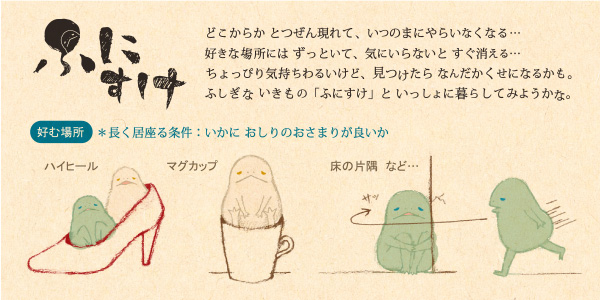 ふにすけ
どこからか とつぜん現れて、いつのまにやらいなくなる…
好きな場所には ずっといて、気にいらないと すぐ消える…
ちょっぴり気持ちわるいけど、見つけたら なんだかくせになるかも。
ふしぎな いきもの「ふにすけ」と いっしょに暮らしてみようかな。
好む場所 ＊長く居座る条件：いかに おしりのおさまりが良いか
ハイヒール マグカップ 床の片隅 など…
サッ